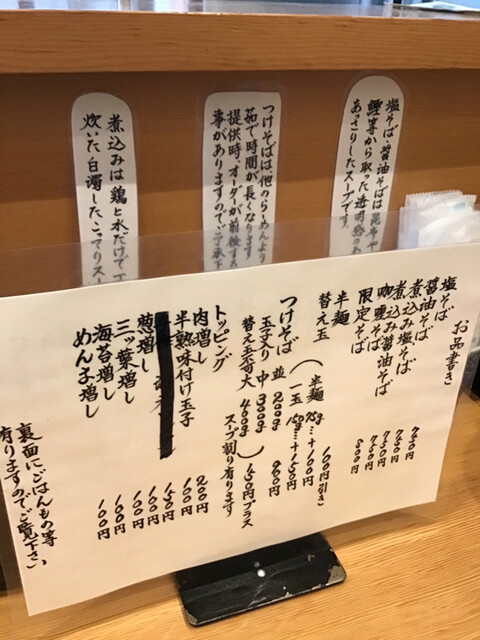 塩そば・醤油そばは昆布や
鰹等から取った透明感のあ
あっさりしたスープです。
つけそばは他のらーめんより
茹で時間が長くなります
提供時、オーダーが前後する
事がありますのでご了承下
煮込みは鶏と水だけで
炊いた白濁したこってりスー
お品書き
塩そば 740円
醤油そば 740円
煮込み塩そば 750円
煮込み醤油そば 750円
咖喱そば
限定そば 800円
半麺 100円引き
替え玉(半麺 75g…+100円
一玉 150g…+150円
つけそば 並 200g
玉子入り 中 300g
替え玉可 大 400g)
450円プラス
スープ割り有ります
トッピング
肉増し 200円
半熟味付け玉子 100円
葱増し 100円
三ッ葉増し 100円
海苔増し 100円
めん子増し 100円
裏面にごはんもの等
有りますのでご覧下さい